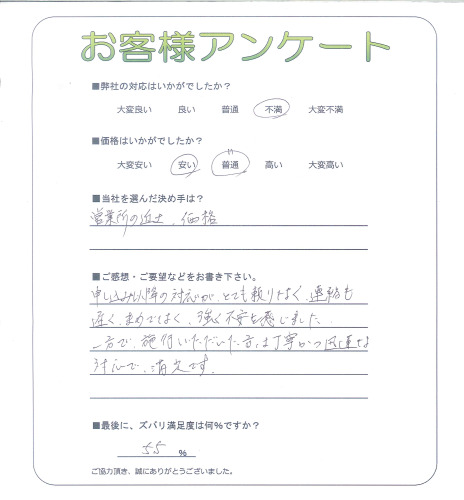 お客様アンケート
■弊社の対応はいかがでしたか？
大変良い 良い 普通 不満 大変不満
■価格はいかがでしたか？
大変安い 安い 普通 高い 大変高い
■当社を選んだ決め手は？
営業所の近さ、価格
■ご感想・ご要望などをお書き下さい。
申し込み以降の対応が、とても頼りなく、連絡も
遅く、まめではなく、強く不安を感じました。
一方で、施行いただいた方は丁寧かつ迅速な
対応で、満足です。
■最後に、ズバリ満足度は何％ですか？
55 ％
ご協力頂き、誠にありがとうございました。